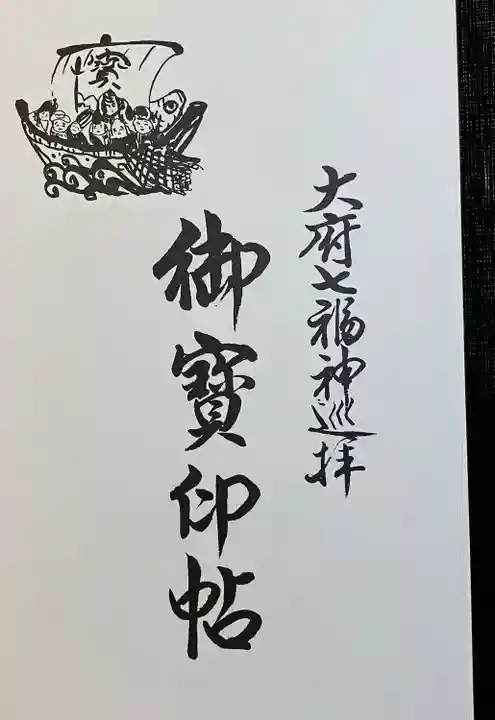 大府七福神巡拝
御寶印帖
寶